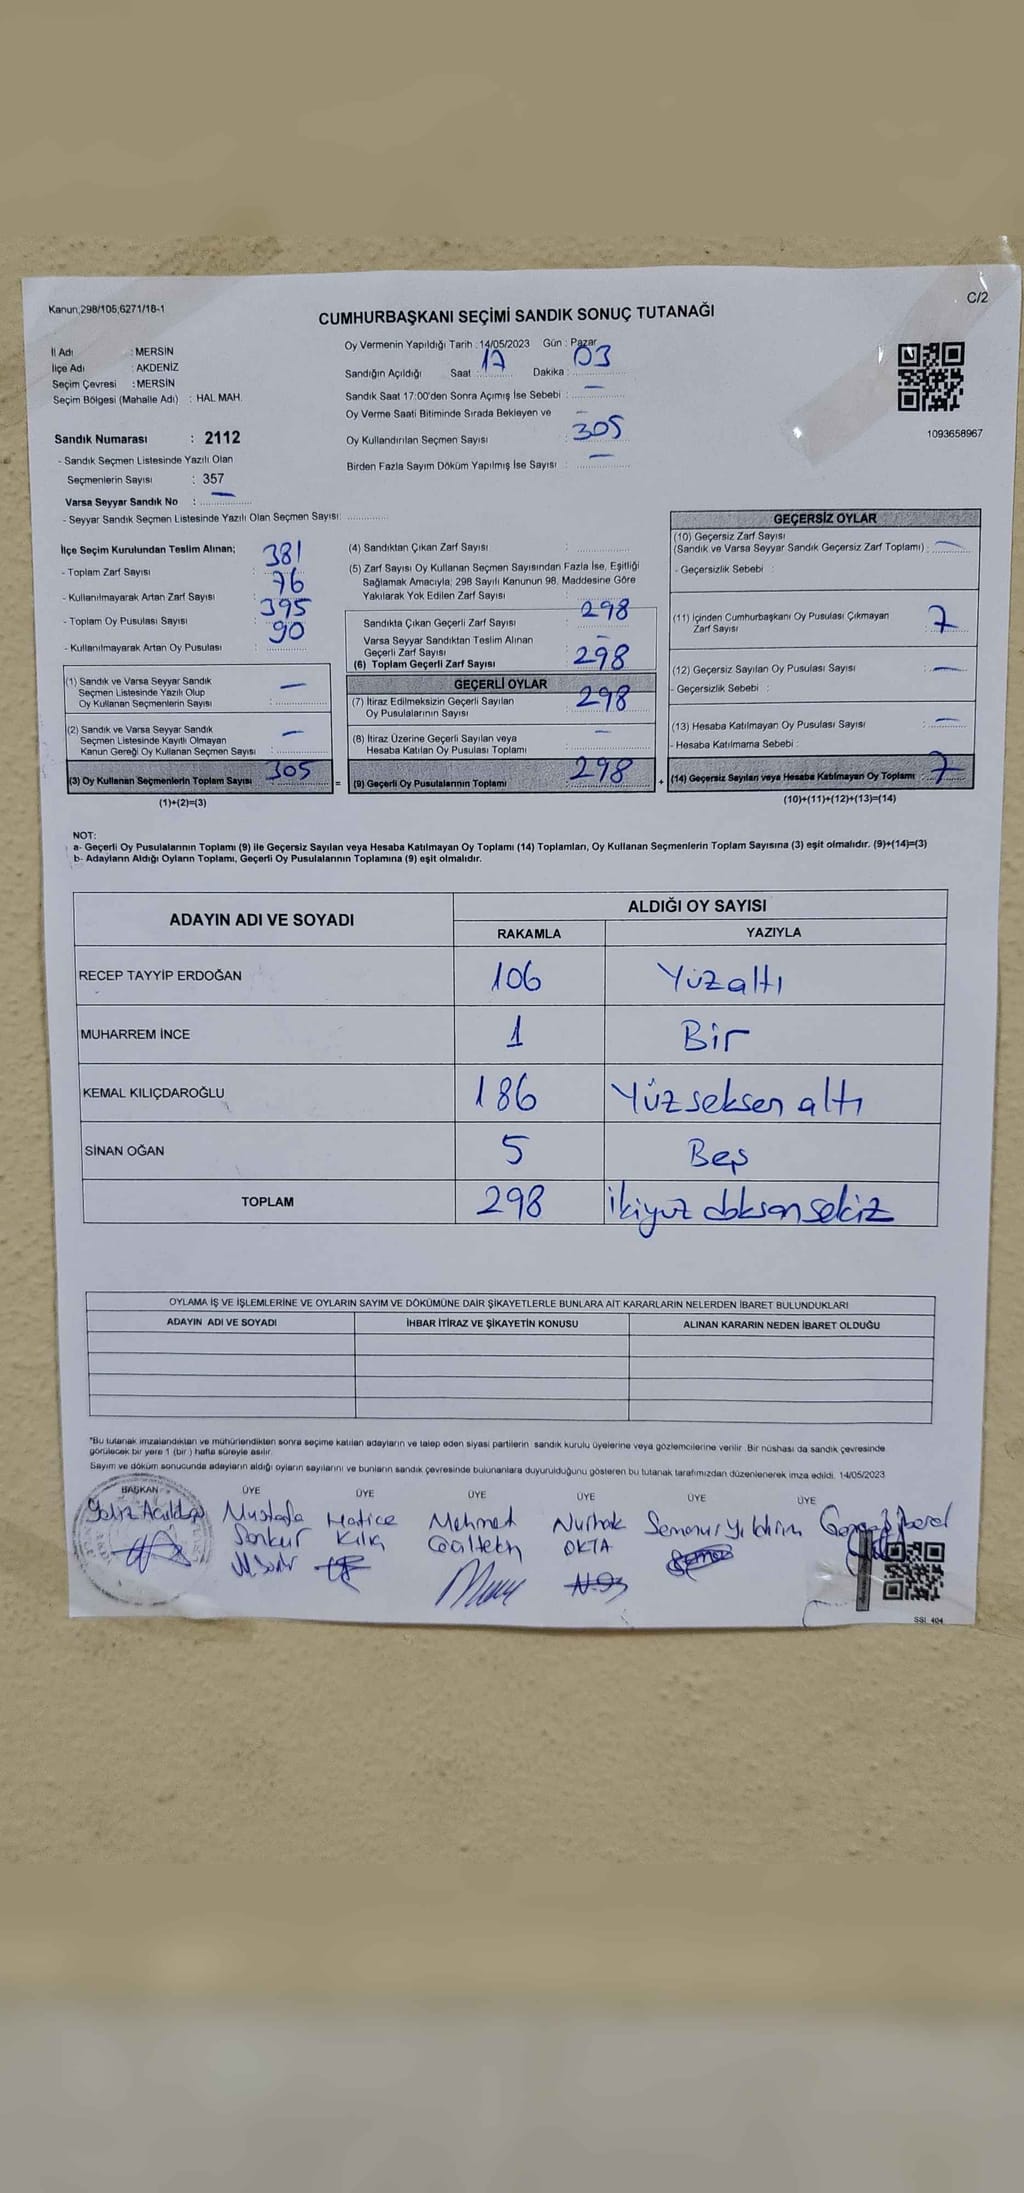 Kanun,298/105,6271/18-1
C/2
CUMHURBAŞKANI SEÇİMİ SANDIK SONUÇ TUTANAĞI
İl Adı : MERSİN
İlçe Adı : AKDENİZ
Seçim Çevresi : MERSİN
Seçim Bölgesi (Mahalle Adı) : HAL MAH.
Oy Vermenin Yapıldığı Tarih : 14/05/2023 Gün : Pazar
Sandığın Açıldığı Saat : 17 Dakika : 03
Sandık Saat 17:00'den Sonra Açımış İse Sebebi : —
Oy Verme Saati Bitiminde Sırada Bekleyen ve
Oy Kullandırılan Seçmen Sayısı : 305
Birden Fazla Sayım Döküm Yapılmış İse Sayısı : —
1093658967
Sandık Numarası : 2112
- Sandık Seçmen Listesinde Yazılı Olan
Seçmenlerin Sayısı : 357
Varsa Seyyar Sandık No : —
- Seyyar Sandık Seçmen Listesinde Yazılı Olan Seçmen Sayısı:
İlçe Seçim Kurulundan Teslim Alınan;
- Toplam Zarf Sayısı : 381
- Kullanılmayarak Artan Zarf Sayısı : 76
- Toplam Oy Pusulası Sayısı : 395
- Kullanılmayarak Artan Oy Pusulası : 90
(1) Sandık ve Varsa Seyyar Sandık
Seçmen Listesinde Yazılı Olup
Oy Kullanan Seçmenlerin Sayısı : —
(2) Sandık ve Varsa Seyyar Sandık
Seçmen Listesinde Kayıtlı Olmayan
Kanun Gereği Oy Kullanan Seçmen Sayısı : —
(3) Oy Kullanan Seçmenlerin Toplam Sayısı : 305 =
(1)+(2)=(3)
(4) Sandıktan Çıkan Zarf Sayısı :
(5) Zarf Sayısı Oy Kullanan Seçmen Sayısından Fazla İse, Eşitliği
Sağlamak Amacıyla; 298 Sayılı Kanunun 98. Maddesine Göre
Yakılarak Yok Edilen Zarf Sayısı :
Sandıkta Çıkan Geçerli Zarf Sayısı : 298
Varsa Seyyar Sandıktan Teslim Alınan
Geçerli Zarf Sayısı : —
(6) Toplam Geçerli Zarf Sayısı : 298
GEÇERLİ OYLAR
(7) İtiraz Edilmeksizin Geçerli Sayılan
Oy Pusulalarının Sayısı : 298
(8) İtiraz Üzerine Geçerli Sayılan veya
Hesaba Katılan Oy Pusulası Toplamı : —
(9) Geçerli Oy Pusulalarının Toplamı : 298 +
GEÇERSİZ OYLAR
(10) Geçersiz Zarf Sayısı
(Sandık ve Varsa Seyyar Sandık Geçersiz Zarf Toplamı) : —
- Geçersizlik Sebebi :
(11) İçinden Cumhurbaşkanı Oy Pusulası Çıkmayan
Zarf Sayısı : 7
(12) Geçersiz Sayılan Oy Pusulası Sayısı : —
- Geçersizlik Sebebi :
(13) Hesaba Katılmayan Oy Pusulası Sayısı : —
- Hesaba Katılmama Sebebi :
(14) Geçersiz Sayılan veya Hesaba Katılmayan Oy Toplamı : 7
(10)+(11)+(12)+(13)=(14)
NOT:
a- Geçerli Oy Pusulalarının Toplamı (9) ile Geçersiz Sayılan veya Hesaba Katılmayan Oy Toplamı (14) Toplamları, Oy Kullanan Seçmenlerin Toplam Sayısına (3) eşit olmalıdır. (9)+(14)=(3)
b- Adayların Aldığı Oyların Toplamı, Geçerli Oy Pusulalarının Toplamına (9) eşit olmalıdır.
ADAYIN ADI VE SOYADI
ALDIĞI OY SAYISI
RAKAMLA YAZIYLA
RECEP TAYYİP ERDOĞAN 106 Yüzaltı
MUHARREM İNCE 1 Bir
KEMAL KILIÇDAROĞLU 186 Yüzseksen altı
SİNAN OĞAN 5 Beş
TOPLAM 298 İkiyüz doksan sekiz
OYLAMA İŞ VE İŞLEMLERİNE VE OYLARIN SAYIM VE DÖKÜMÜNE DAİR ŞİKAYETLERLE BUNLARA AİT KARARLARIN NELERDEN İBARET BULUNDUKLARI
ADAYIN ADI VE SOYADI İHBAR İTİRAZ VE ŞİKAYETİN KONUSU ALINAN KARARIN NEDEN İBARET OLDUĞU
*Bu tutanak imzalandıktan ve mühürlendikten sonra seçime katılan adayların ve talep eden siyasi partilerin sandık kurulu üyelerine veya gözlemcilerine verilir. Bir nüshası da sandık çevresinde
görülecek bir yere 1 (bir) hafta süreyle asılır.
Sayım ve döküm sonucunda adayların aldığı oyların sayılarını ve bunların sandık çevresinde bulunanlara duyurulduğunu gösteren bu tutanak tarafımızdan düzenlenerek imza edildi. 14/05/2023
BAŞKAN ÜYE ÜYE ÜYE ÜYE ÜYE ÜYE
Mustafa Hatice Mehmet Nurhak Semanur Yıldırım
OKTA
SSI_404